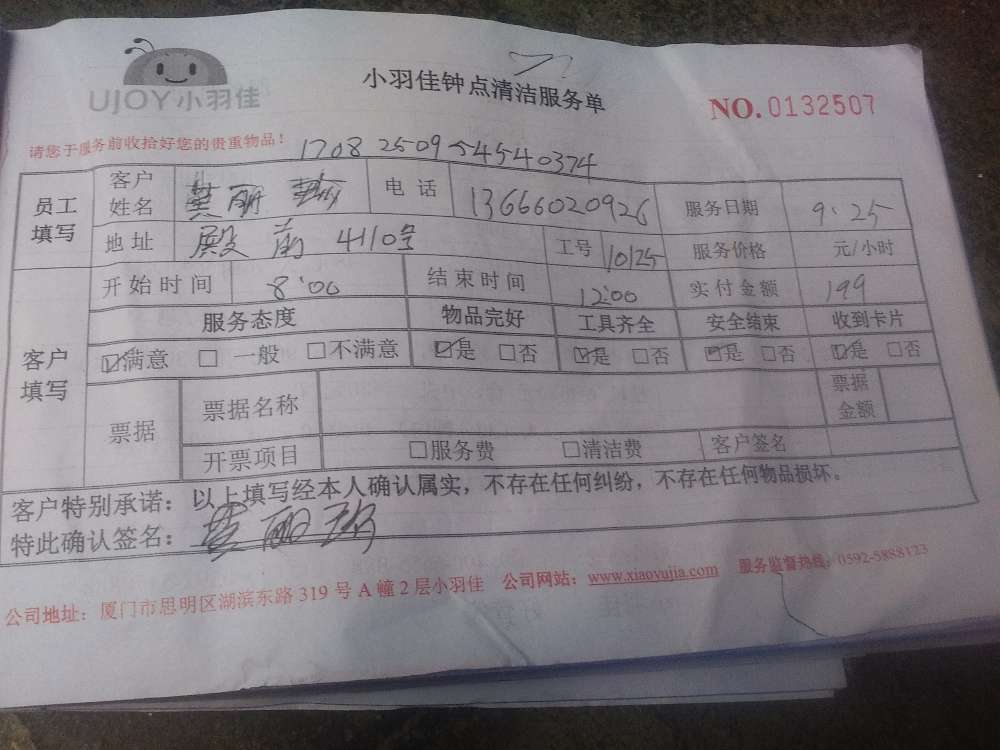 UJOY小羽佳
小羽佳钟点清洁服务单
NO.0132507
请您于服务前收拾好您的贵重物品!
1708 2509 54540374
员工填写
客户姓名 黄丽 电话 13666020926 服务日期 9.25
地址 殿前4110号 工号 10125 服务价格 元/小时
客户填写
开始时间 8:00 结束时间 12:00 实付金额 199
服务态度 物品完好 工具齐全 安全结束 收到卡片
☑满意 □一般 □不满意 ☑是 □否 ☑是 □否 ☑是 □否 ☑是 □否
票据 票据名称 票据金额
开票项目 □服务费 □清洁费 客户签名
客户特别承诺：以上填写经本人确认属实，不存在任何纠纷，不存在任何物品损坏。
特此确认签名：黄丽
公司地址：厦门市思明区湖滨东路319号A幢2层小羽佳 公司网站：www.xiaoyujia.com 服务监督热线：0592-5888123